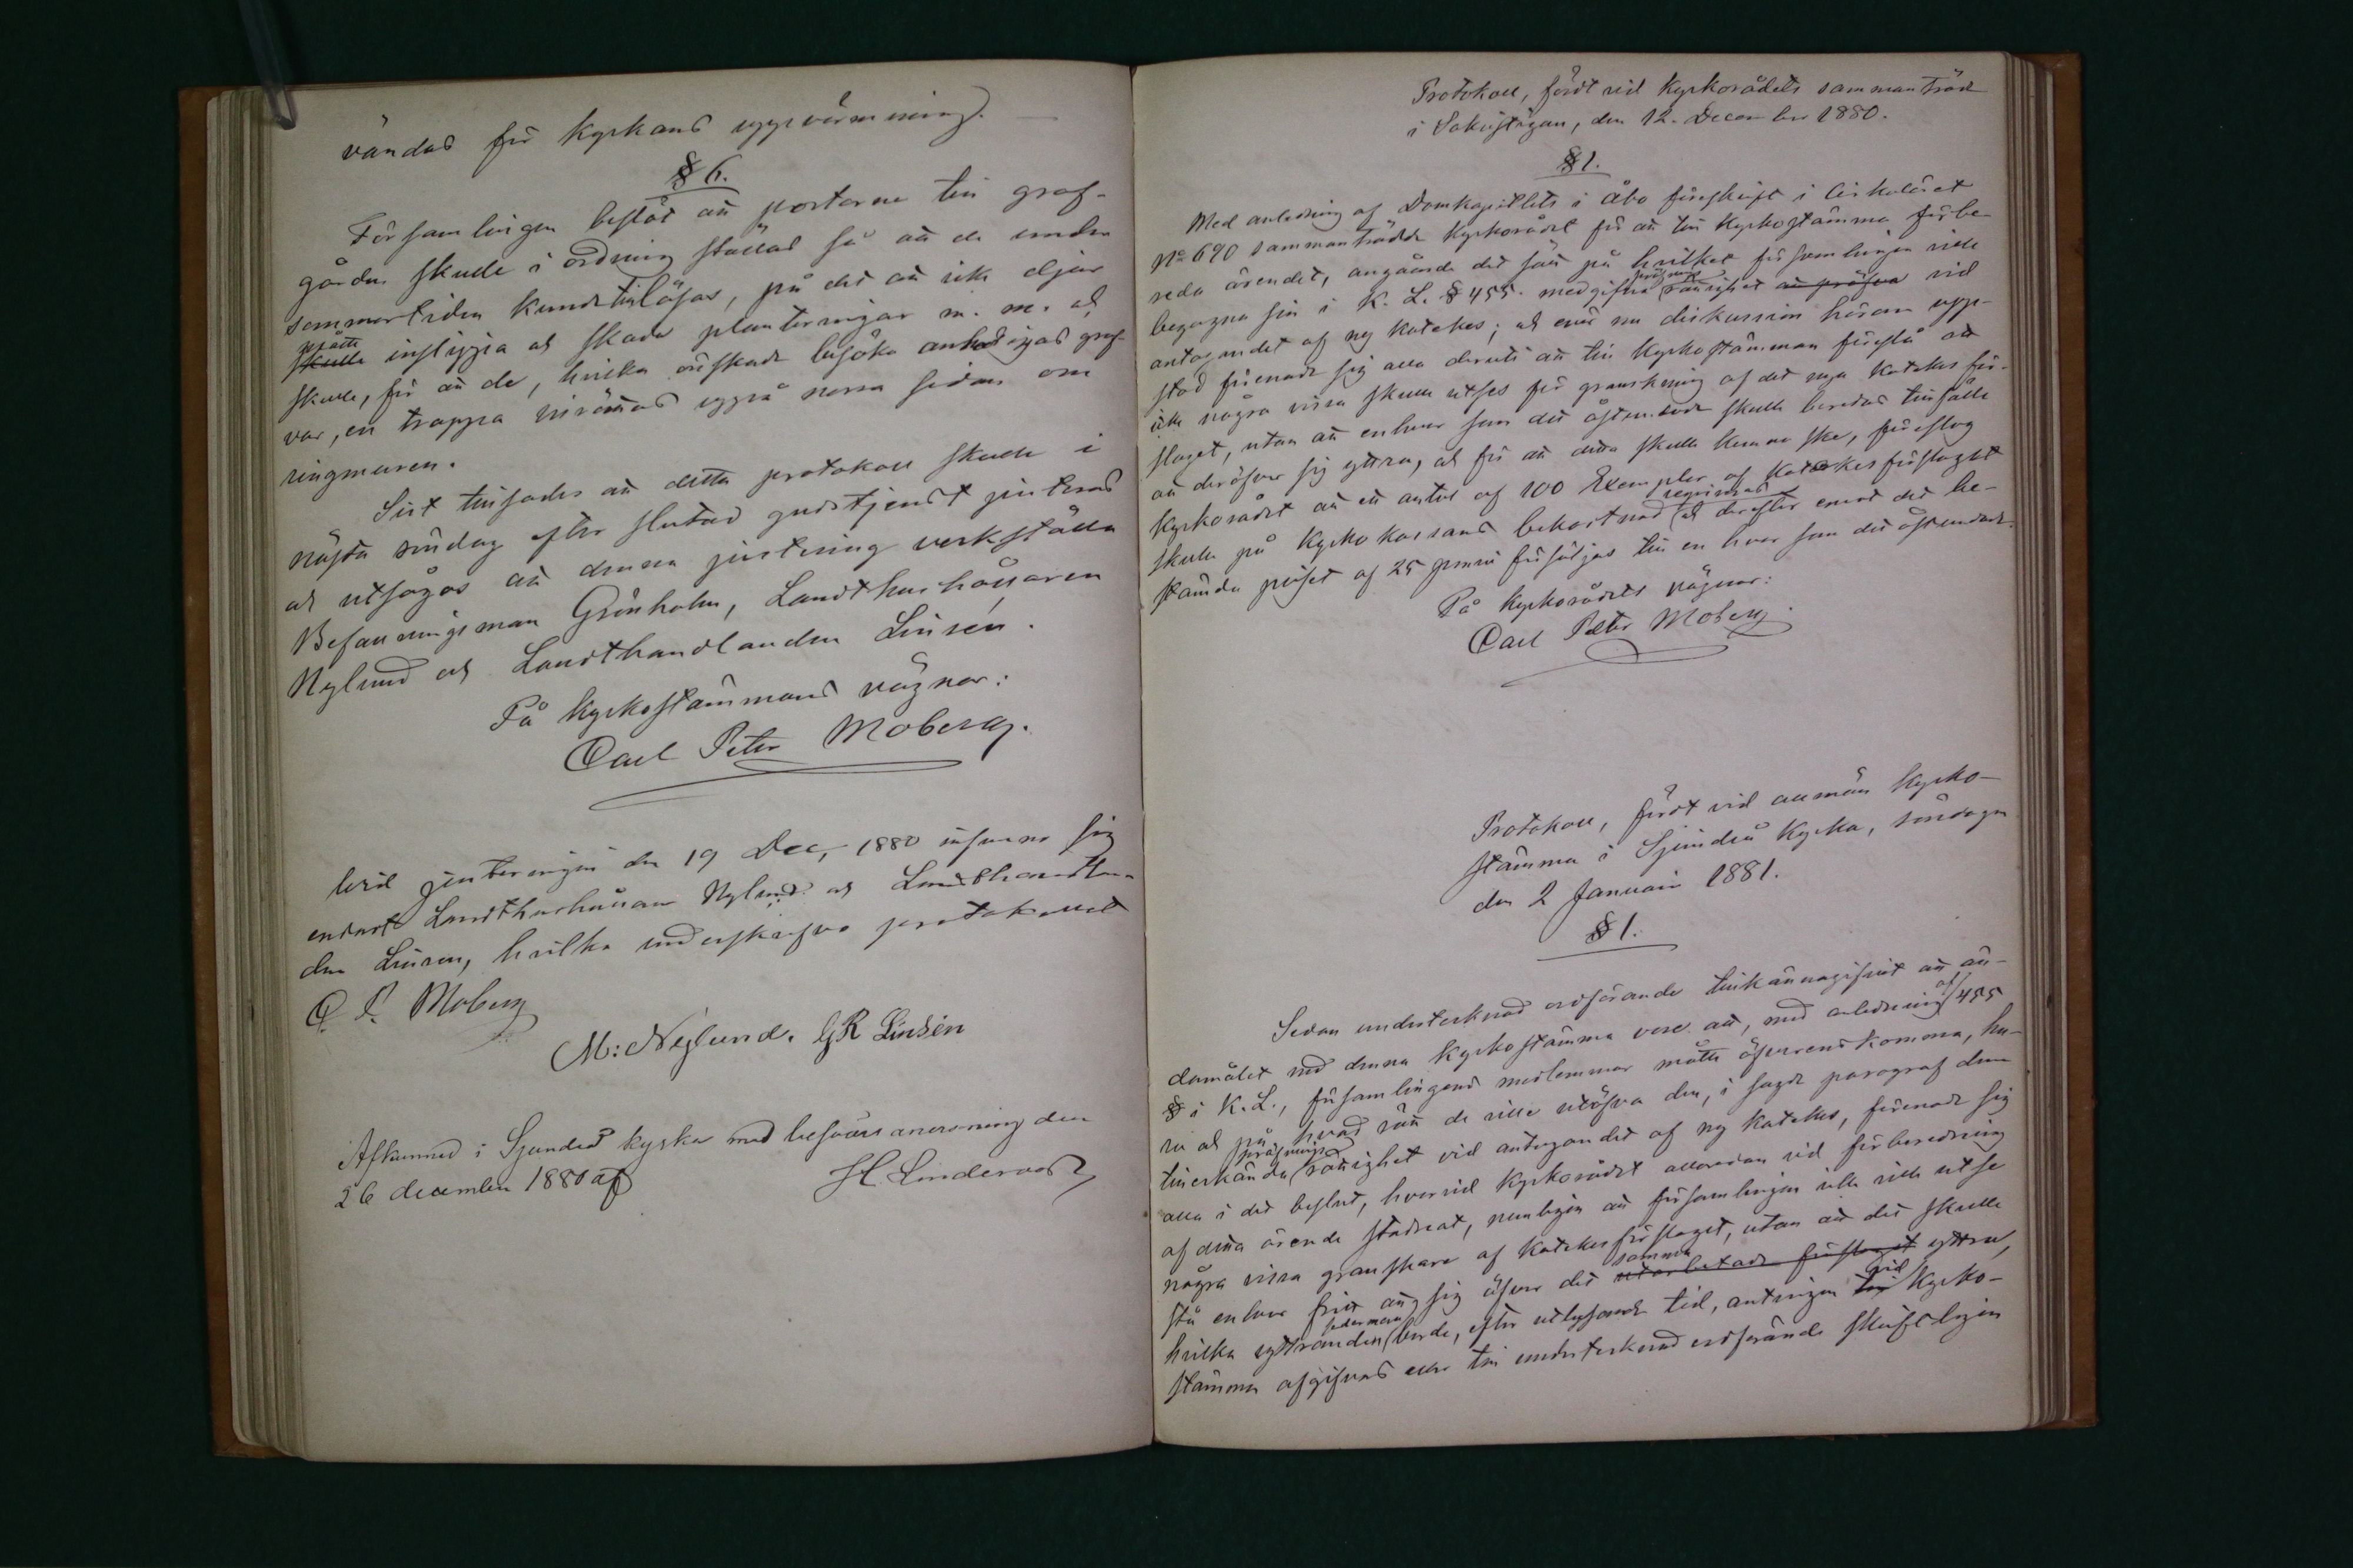 vändas för kyrkans uppvärmning.
§ 6.
Församlingen beslöt att portarne till graf-
gården skulle i ordning ställas så att de under
sommartiden kunde tillåsas, på det att icke djur
måtte
skulle inslippa och skada planteringar m. m. och
skulle, för att de, hvilka önskade besöka anhörigas graf-
var, en trappa inrättas uppå norra sidan om
ringmuren.
Sist tillsades att detta protokoll skulle i
nästa söndag efter slutad gudstjenst justeras
och utsågos att denna justering verkställa
Befallningsman Grönholm, Landthushållaren
Nylund och Landthandlanden Linsén.
På Kyrkostämmans vägnar:
Carl Peter Moberg.
Wid justeringen den 19 Dec, 1880 infunno sig
endast Landthushållaren Nylund och Landthandlan-
den Linsen, hvilka underskrefvo protokollet
C. P. Moberg
M: Nylund. GR Linsén
Afkunnad i Sjundeå kyrka med besvärsanvisning den
26 december 1880 af H Lindervall
Protokoll, fördt vid Kyrkorådets sammanträde
i Sakristigan, den 12. December 1880.
§ 1.
Med anledning af Domkapitlets i Åbo föreskrift i Cirkuläret
No 690 sammanträdde Kyrkorådet för att till Kyrkostämma förbe-
reda ärendet, angående det sätt på hvilket församlingen ville
begagna sin i K. L. § 455. medgifna pröfnings rättighet att pröfva vid
antagandet af ny katekes; och enär nu diskussion härom upp-
stod förenade sig alla deruti att till Kyrkostämman föreslå att
icke några vissa skulle utses för granskning af det nya Katekes för-
slaget, utan att enhvar som det åstundade skulle beredas tillfälle
att deröfver sig yttra, och för att detta skulle kunna ske, föreslog
Kyrkorådet att ett antal af 100 Exemplar af Katekesförslaget
skulle på Kyrkokassans bekostnad reqvireras och derefter emot det be-
stämda priset af 25 penni försäljas till en hvar som det åstundade.
På Kyrkorådets vägnar:
Carl Peter Moberg.
Protokoll, fördt vid allmän Kyrko-
stämma i Sjundeå Kyrka, söndagen
den 2 Januari 1881.
§ 1.
Sedan undertecknad ordförande tillkännagifvit att än-
damålet med denna Kyrkostämma vore att, med anledning af 455
§ i K. L., församlingens medlemmar måtte öfverenskomma, hu-
ru och på hvad sätt de ville utöfva den, i sagde paragraf dem
tillerkända pröfnings rättighet vid antagandet af ny katekes, förenade sig
alla i det beslut, hvarvid Kyrkorådet allaredan vid förberedning
af detta ärende stadnat, nemligen att församlingen icke ville utse
några vissa granskare af Katekesförslaget, utan att det skulle
stå enhvar fritt att sig öfver det samma utarbetade förslaget yttra,
hvilka yttranden sedermera borde, efter utlysande tid, antingen till vid Kyrko-
stämma afgifvas eller till undertecknad ordförande skriftligen